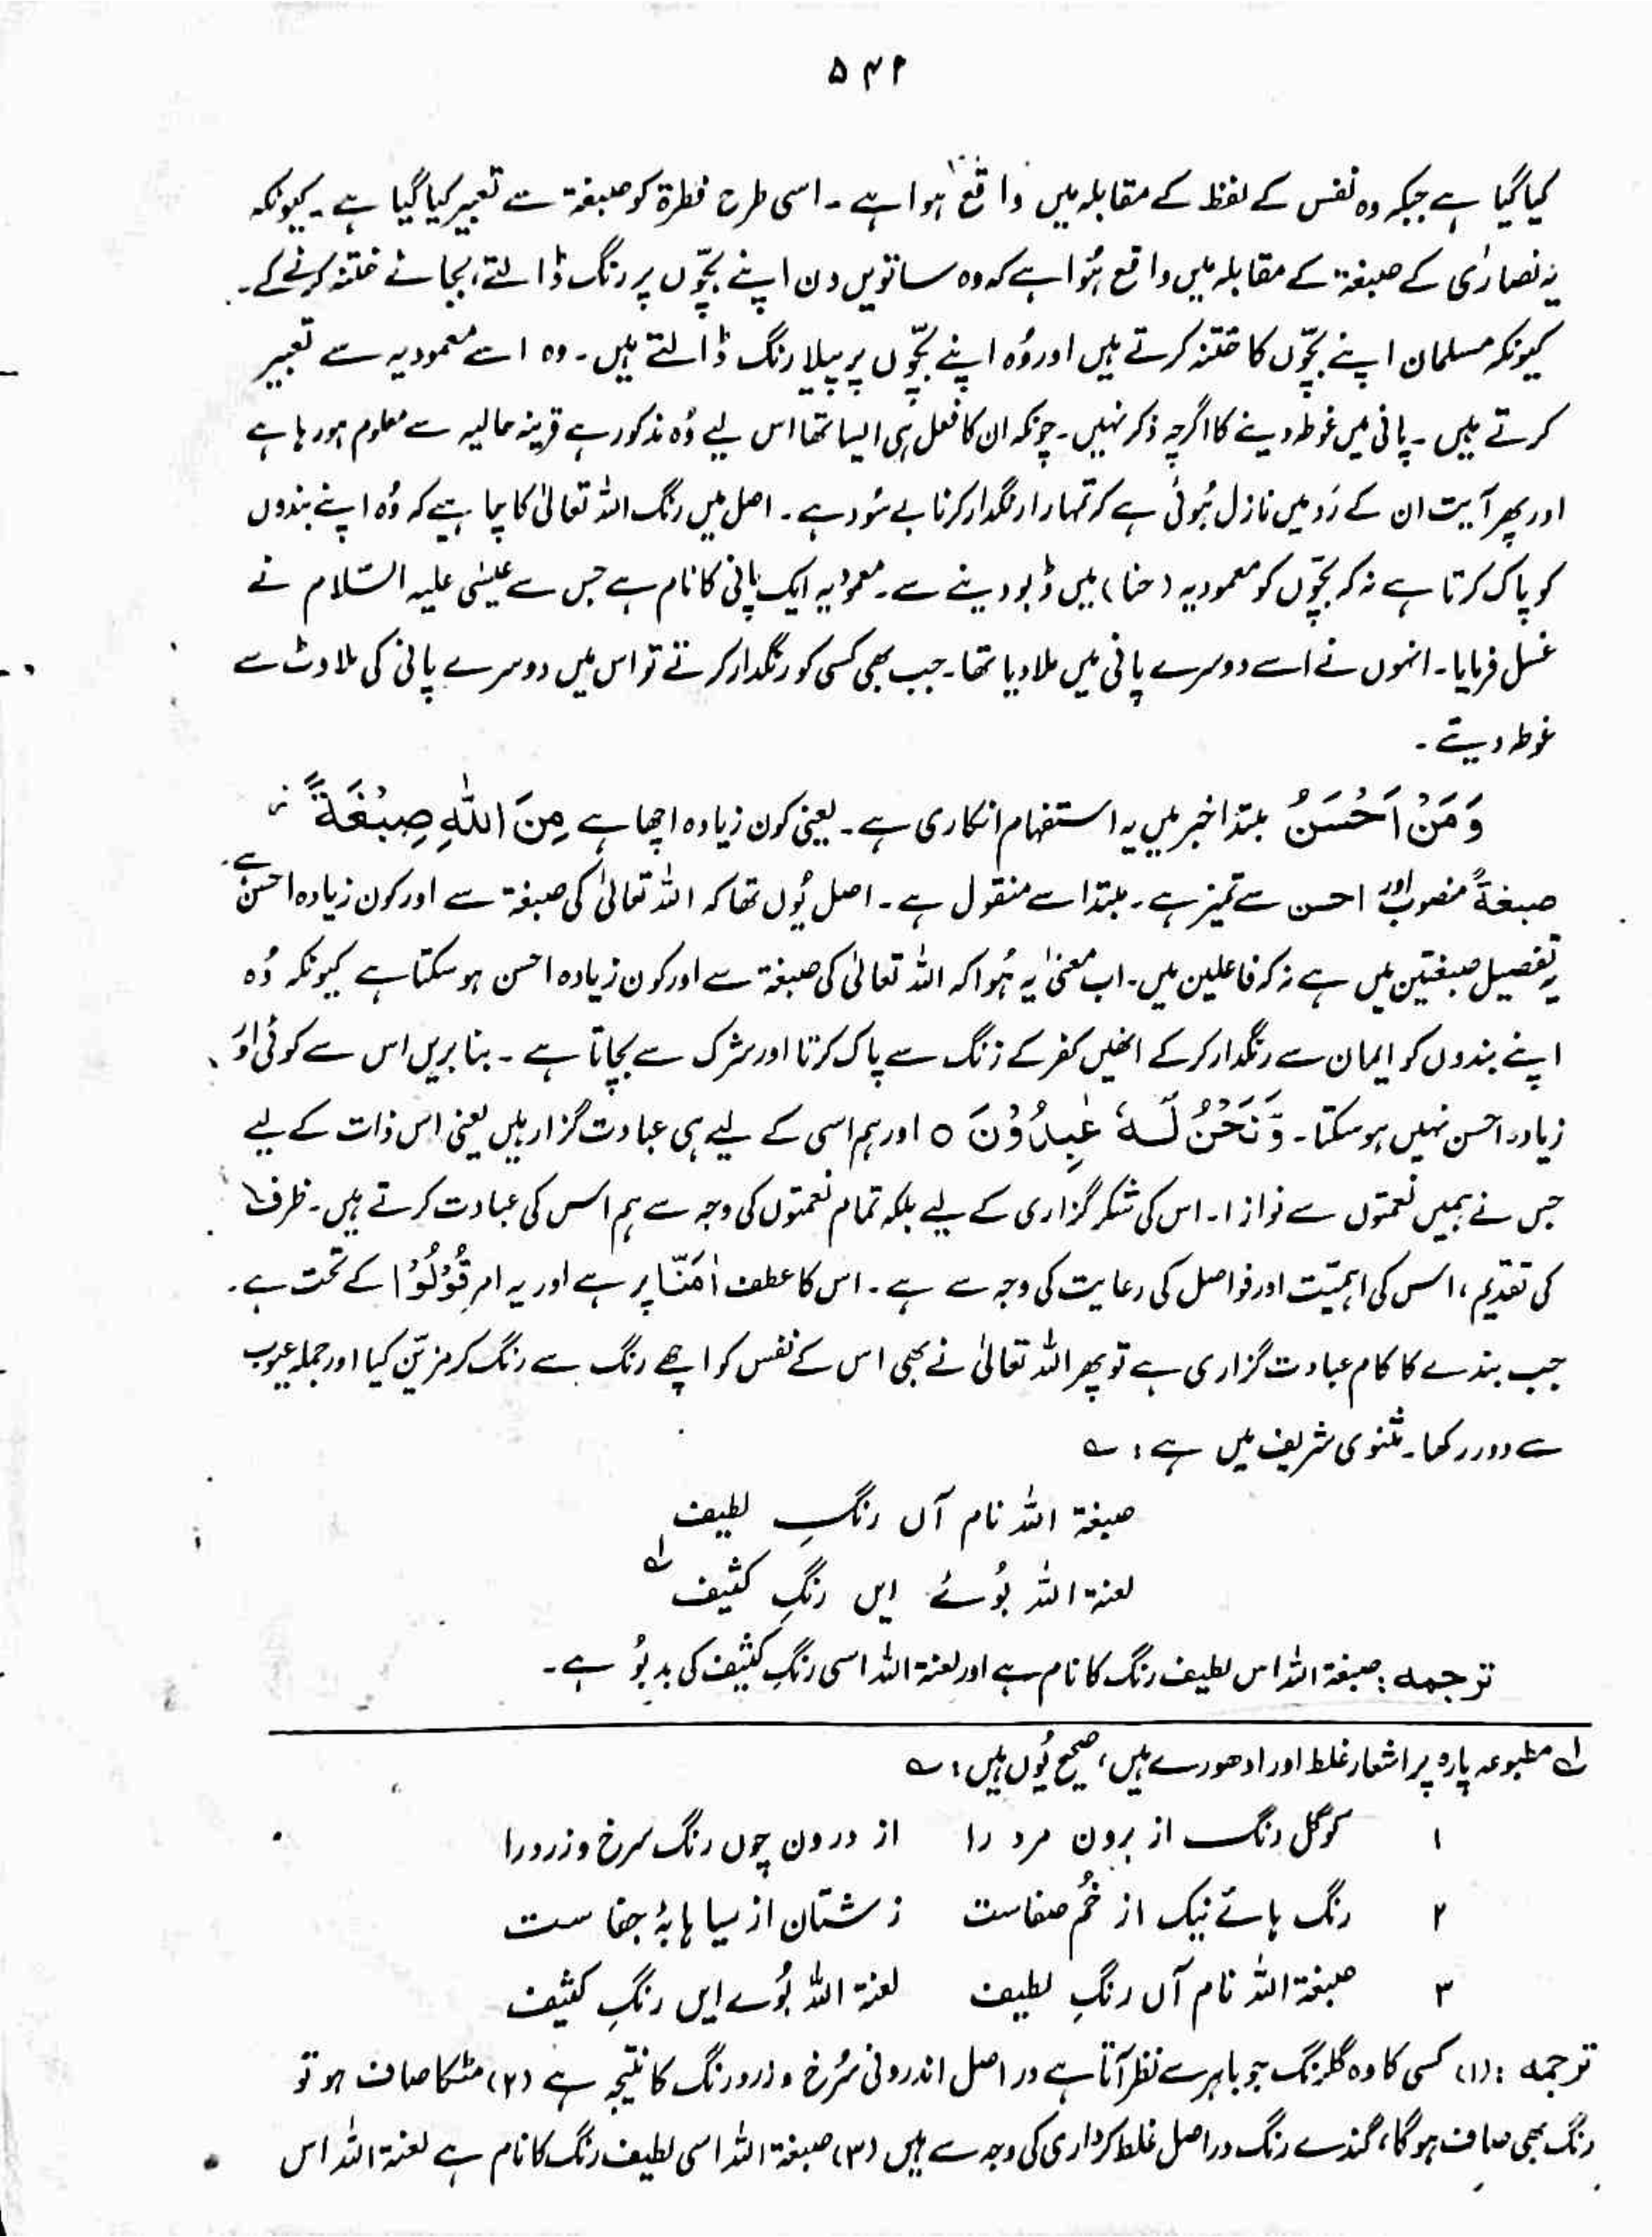 ۵۴۲
کیا گیا ہے جبکہ وہ نفس کے لفظ کے مقابلہ میں واقع ہوا ہے ۔ اسی طرح فطرۃ کو صبغۃ سے تعبیر کیا گیا ہے ۔ کیونکہ
یہ نصارٰی کے صبغۃ کے مقابلہ میں واقع ہُوا ہے کہ وہ ساتویں دن اپنے بچّوں پر رنگ ڈالتے، بجائے ختنہ کرنے کے ۔
کیونکہ مسلمان اپنے بچّوں کا ختنہ کرتے ہیں اور وُہ اپنے بچّوں پر پیلا رنگ ڈالتے ہیں ۔ وہ اسے معمودیہ سے تعبیر
کرتے ہیں ۔ پانی میں غوطہ دینے کا اگرچہ ذکر نہیں ۔ چونکہ ان کا فعل ہی ایسا تھا اس لیے وُہ مذکور ہے قرینہ حالیہ سے معلوم ہو رہا ہے
اور پھر آیت ان کے رَد میں نازل ہُوئی ہے کہ تمہارا رنگدار کرنا بے سُود ہے ۔ اصل میں رنگ اللہ تعالیٰ کا سچا ہے کہ وُہ اپنے بندوں
کو پاک کرتا ہے نہ کہ بچّوں کو معمودیہ (حنا) میں ڈبو دینے سے ۔ معمودیہ ایک پانی کا نام ہے جس سے عیسٰی علیہ السّلام نے
غسل فرمایا ۔ انہوں نے اسے دوسرے پانی میں ملا دیا تھا ۔ جب بھی کسی کو رنگدار کرتے تو اس میں دوسرے پانی کی ملاوٹ سے
غوطہ دیتے ۔
وَمَنْ اَحْسَنُ مبتدا خبر میں یہ استفہام انکاری ہے ۔ یعنی کون زیادہ اچھا ہے مِنَ اللّٰہِ صِبْغَۃً ز
صبغۃً منصوب اور احسن سے تمیز ہے ۔ مبتدا سے منقول ہے ۔ اصل یُوں تھا کہ اللہ تعالیٰ کی صبغۃ سے اور کون زیادہ احسن ہے
یہ تفصیل صبغتین میں ہے نہ کہ فاعلین میں ۔ اب معنیٰ یہ ہُوا کہ اللہ تعالیٰ کی صبغۃ سے اور کون زیادہ احسن ہو سکتا ہے کیونکہ وُہ
اپنے بندوں کو ایمان سے رنگدار کر کے انھیں کفر کے زنگ سے پاک کرتا اور شرک سے بچاتا ہے ۔ بنا بریں اس سے کوئی اور
زیادہ احسن نہیں ہو سکتا ۔ وَّنَحْنُ لَہٗ عٰبِدُوْنَ ○ اور ہم اسی کے لیے ہی عبادت گزار ہیں یعنی اس ذات کے لیے
جس نے ہمیں نعمتوں سے نوازا ۔ اس کی شکر گزاری کے لیے بلکہ تمام نعمتوں کی وجہ سے ہم اس کی عبادت کرتے ہیں ۔ ظرف
کی تقدیم ، اس کی اہمیّت اور فواصل کی رعایت کی وجہ سے ہے ۔ اس کا عطف اٰمَنَّا پر ہے اور یہ امر قُوْلُوْا کے تحت ہے ۔
جب بندے کا کام عبادت گزاری ہے تو پھر اللہ تعالیٰ نے بھی اس کے نفس کو اچھے رنگ سے رنگ کر مزیّن کیا اور جملہ عیوب
سے دور رکھا ۔ مثنوی شریف میں ہے : ؎
صبغۃ اللہ نام آں رنگِ لطیف
لعنۃ اللہ بُوئے ایں رنگِ کثیف ؎۱
ترجمہ : صبغۃ اللہ اس لطیف رنگ کا نام ہے اور لعنۃ اللہ اسی رنگِ کثیف کی بدبُو ہے ۔
؎۱ مطبوعہ پارہ پر اشعار غلط اور ادھورے ہیں ، صحیح یُوں ہیں : ؎
۱ گو گل رنگ از برون مرد را از درون چوں رنگ سرخ و زرد را
۲ رنگ ہائے نیک از خُم صفاست زشتان از سیاہابۂ جفاست
۳ صبغۃ اللہ نام آں رنگِ لطیف لعنۃ اللہ بُوے ایں رنگِ کثیف
ترجمہ : (۱) کسی کا وہ گلرنگ جو باہر سے نظر آتا ہے در اصل اندرونی سُرخ و زرد رنگ کا نتیجہ ہے (۲) مٹکا صاف ہو تو
رنگ بھی صاف ہوگا ، گندے رنگ در اصل غلط کرداری کی وجہ سے ہیں (۳) صبغۃ اللہ اسی لطیف رنگ کا نام ہے لعنۃ اللہ اس